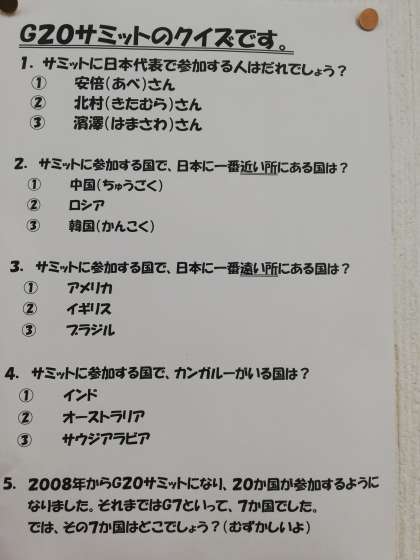 G20サミットのクイズです。
1. サミットに日本代表で参加する人はだれでしょう?
① 安倍(あべ)さん
② 北村(きたむら)さん
③ 濱澤(はまさわ)さん
2. サミットに参加する国で、日本に一番近い所にある国は?
① 中国(ちゅうごく)
② ロシア
③ 韓国(かんこく)
3. サミットに参加する国で、日本に一番遠い所にある国は?
① アメリカ
② イギリス
③ ブラジル
4. サミットに参加する国で、カンガルーがいる国は?
① インド
② オーストラリア
③ サウジアラビア
5. 2008年からG20サミットになり、20か国が参加するように
なりました。それまではG7といって、7か国でした。
では、その7か国はどこでしょう?(むずかしいよ)